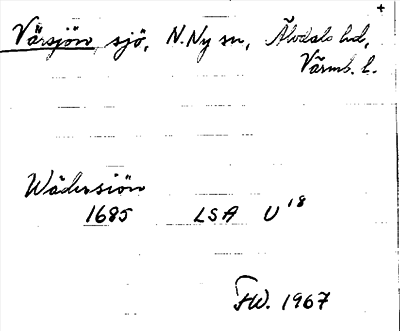 +
Värsjön, sjö, N. Ny sn, Älvdals hd,
Värml. l.
Wädersiön
1685 LSA U 18
FW. 1967